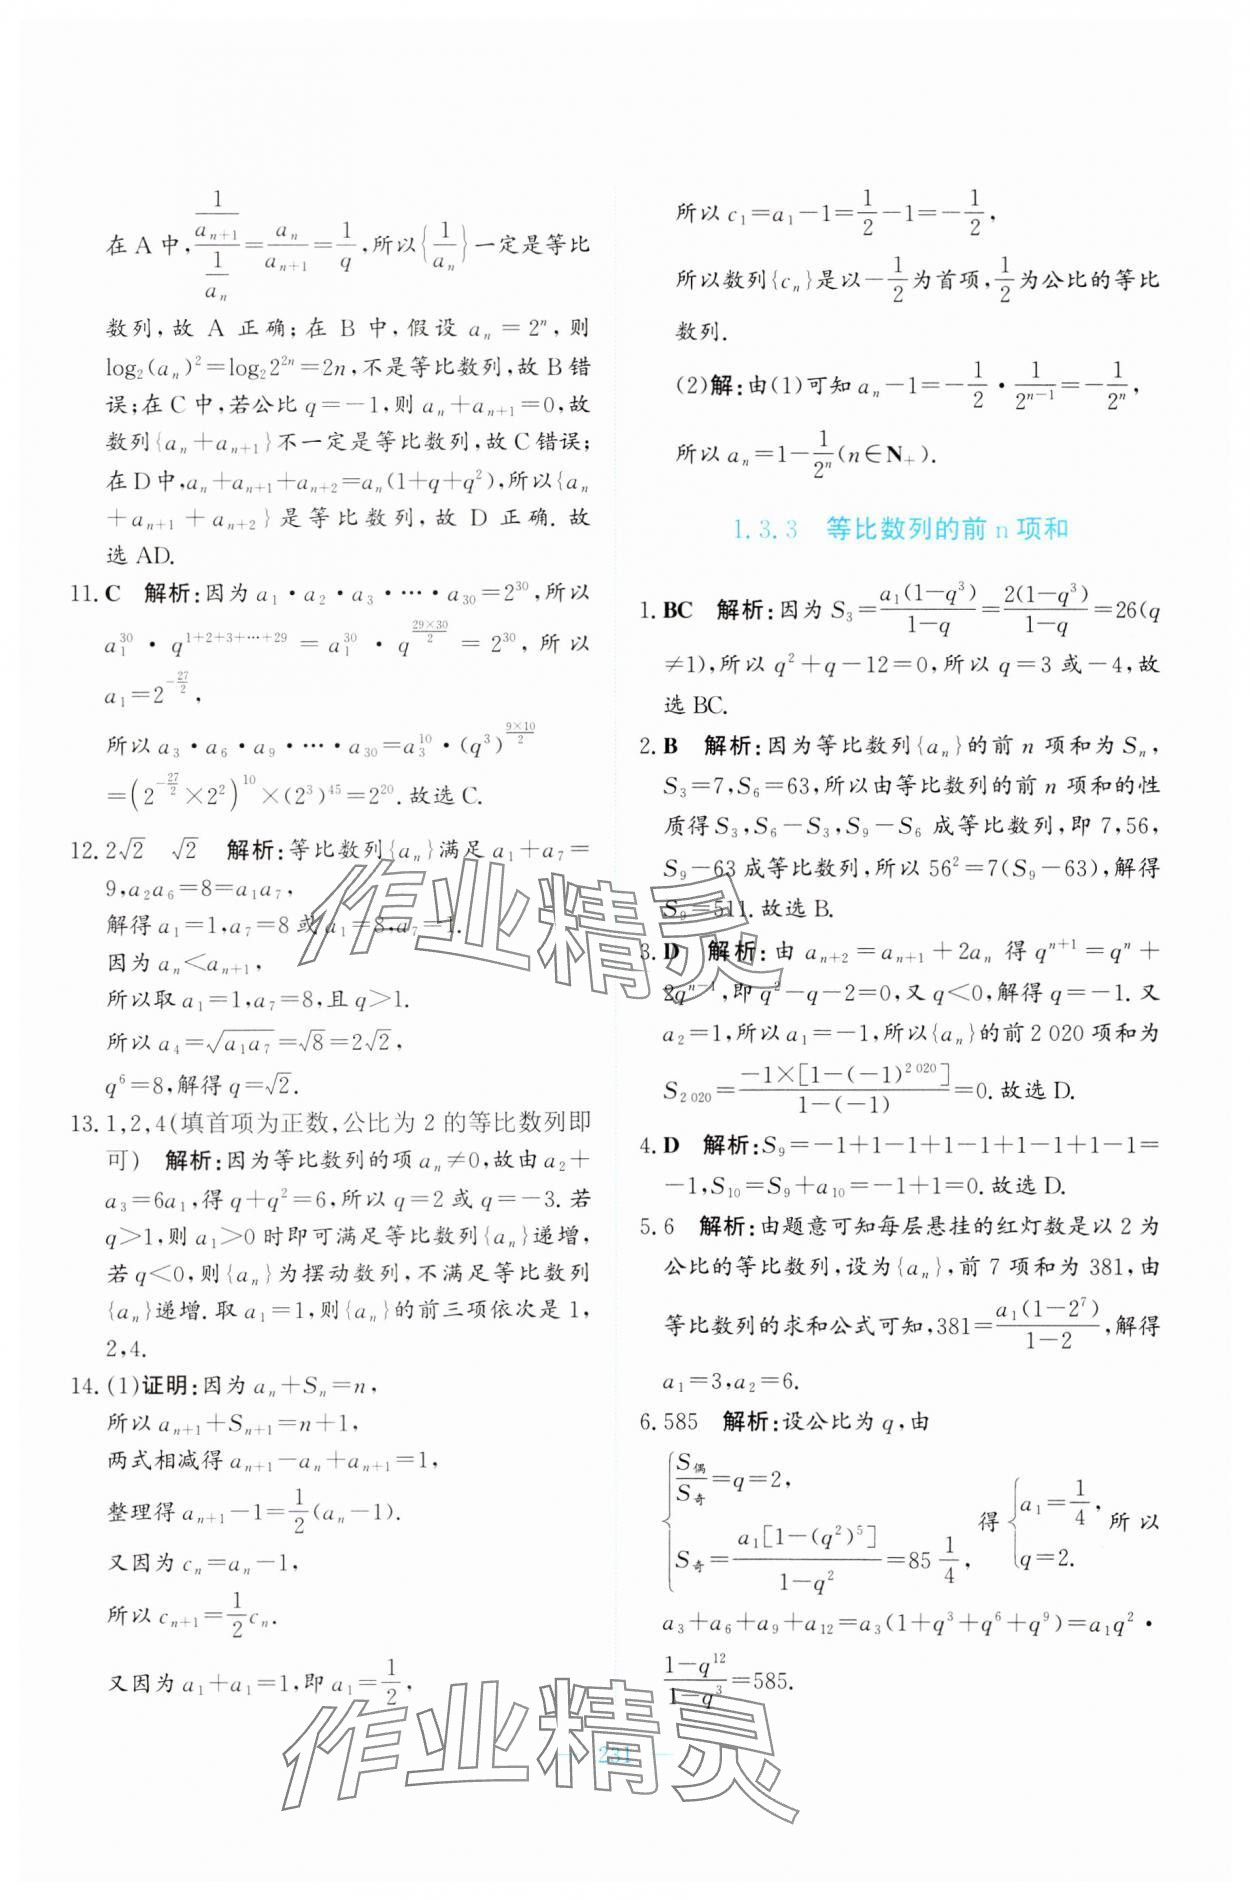 在 A 中,\frac{\frac{1}{a_{n+1}}}{\frac{1}{a_n}}=\frac{a_n}{a_{n+1}}=\frac{1}{q},所以{\frac{1}{a_n}}一定是等比
数列,故 A 正确;在 B 中,假设 a_n=2^n,则
log_2(a_n)^2=log_2 2^{2n}=2n,不是等比数列,故 B 错
误;在 C 中,若公比 q=-1,则 a_n+a_{n+1}=0,故
数列{a_n+a_{n+1}}不一定是等比数列,故 C 错误;
在 D 中,a_n+a_{n+1}+a_{n+2}=a_n(1+q+q^2),所以{a_n
+a_{n+1}+a_{n+2}}是等比数列,故 D 正确.故
选 AD.
11. C 解析:因为 a_1·a_2·a_3·…·a_{30}=2^{30},所以
a_1^{30}·q^{1+2+3+…+29}=a_1^{30}·q^{\frac{29×30}{2}}=2^{30},所以
a_1=2^{-\frac{27}{2}},
所以 a_3·a_6·a_9·…·a_{30}=a_3^{10}·(q^3)^{\frac{9×10}{2}}
=(2^{-\frac{27}{2}}×2^2)^{10}×(2^3)^{45}=2^{20}.故选 C.
12. 2√2 √2 解析:等比数列{a_n}满足 a_1+a_7=
9,a_2a_6=8=a_1a_7,
解得 a_1=1,a_7=8 或 a_1=8,a_7=1.
因为 a_n<a_{n+1},
所以取 a_1=1,a_7=8,且 q>1.
所以 a_4=√(a_1a_7)=√8=2√2,
q^6=8,解得 q=√2.
13. 1,2,4(填首项为正数,公比为 2 的等比数列即
可) 解析:因为等比数列的项 a_n≠0,故由 a_2+
a_3=6a_1,得 q+q^2=6,所以 q=2 或 q=-3.若
q>1,则 a_1>0 时即可满足等比数列{a_n}递增,
若 q<0,则{a_n}为摆动数列,不满足等比数列
{a_n}递增.取 a_1=1,则{a_n}的前三项依次是 1,
2,4.
14. (1)证明:因为 a_n+S_n=n,
所以 a_{n+1}+S_{n+1}=n+1,
两式相减得 a_{n+1}-a_n+a_{n+1}=1,
整理得 a_{n+1}-1=\frac{1}{2}(a_n-1).
又因为 c_n=a_n-1,
所以 c_{n+1}=\frac{1}{2}c_n.
又因为 a_1+a_1=1,即 a_1=\frac{1}{2},
所以 c_1=a_1-1=\frac{1}{2}-1=-\frac{1}{2},
所以数列{c_n}是以-\frac{1}{2}为首项,\frac{1}{2}为公比的等比
数列.
(2)解:由(1)可知 a_n-1=-\frac{1}{2}·\frac{1}{2^{n-1}}=-\frac{1}{2^n},
所以 a_n=1-\frac{1}{2^n}(n∈N_+).
1.3.3 等比数列的前 n 项和
1. BC 解析:因为 S_3=\frac{a_1(1-q^3)}{1-q}=\frac{2(1-q^3)}{1-q}=26(q
≠1),所以 q^2+q-12=0,所以 q=3 或-4,故
选 BC.
2. B 解析:因为等比数列{a_n}的前 n 项和为 S_n,
S_3=7,S_6=63,所以由等比数列的前 n 项和的性
质得 S_3,S_6-S_3,S_9-S_6 成等比数列,即 7,56,
S_9-63 成等比数列,所以 56^2=7(S_9-63),解得
S_9=511.故选 B.
3. D 解析:由 a_{n+2}=a_{n+1}+2a_n 得 q^{n+1}=q^n+
2q^{n-1},即 q^2-q-2=0,又 q<0,解得 q=-1.又
a_2=1,所以 a_1=-1,所以{a_n}的前 2 020 项和为
S_{2 020}=\frac{-1×[1-(-1)^{2 020}]}{1-(-1)}=0.故选 D.
4. D 解析:S_9=-1+1-1+1-1+1-1+1-1=
-1,S_{10}=S_9+a_{10}=-1+1=0.故选 D.
5. 6 解析:由题意可知每层悬挂的红灯数是以 2 为
公比的等比数列,设为{a_n},前 7 项和为 381,由
等比数列的求和公式可知,381=\frac{a_1(1-2^7)}{1-2},解得
a_1=3,a_2=6.
6. 585 解析:设公比为 q,由
{\frac{S_偶}{S_奇}=q=2, S_奇=\frac{a_1[1-(q^2)^5]}{1-q^2}=85\frac{1}{4}, 得{a_1=\frac{1}{4}, q=2. 所以
a_3+a_6+a_9+a_{12}=a_3(1+q^3+q^6+q^9)=a_1q^2·
\frac{1-q^{12}}{1-q^3}=585.
231
作业精灵
作业精灵